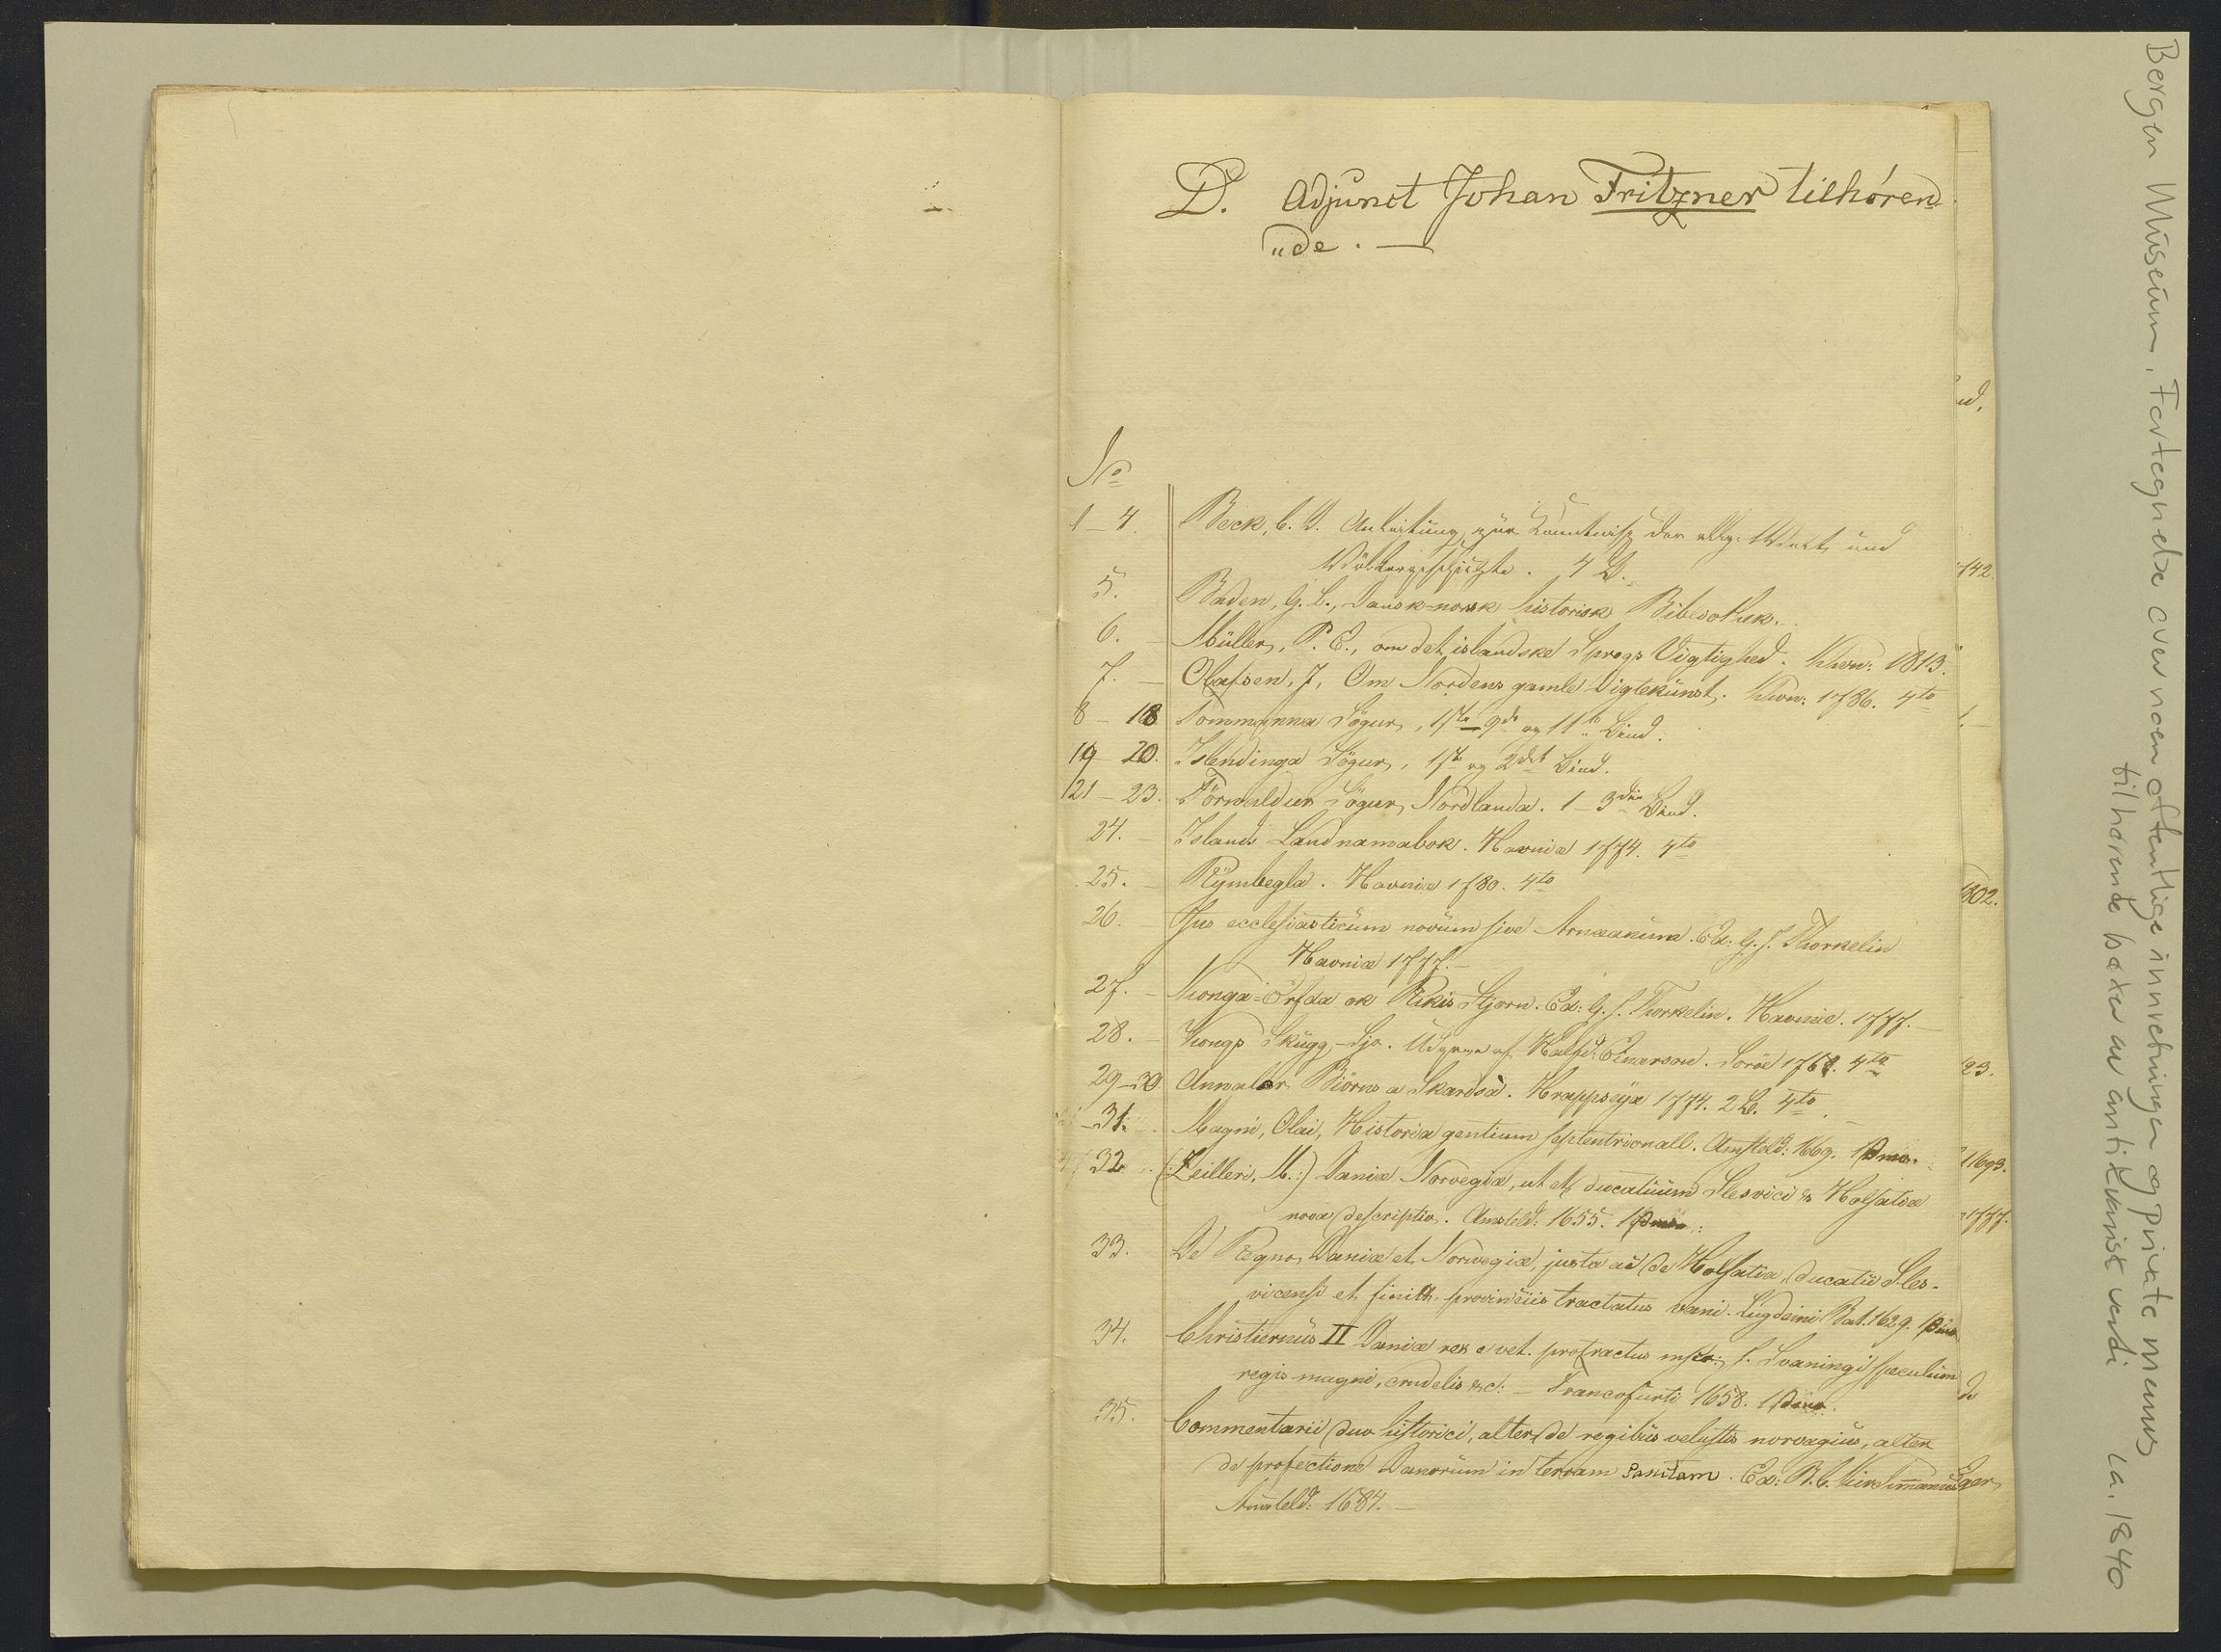 D. Adjunct Johan Fritzner tilhören
"de. —
No
1-4. Beck, C. D. Anleitung zur Kenntniss der allg. Welt und
Völkergeschichte. 4 B.
5. Baden, G. L., Dansk-norsk historisk Bibliothek.
6. Müller, P. E., om det islandske Sprogs Vigtighed. Khvn: 1813.
7. — Olafsen, J, Om Nordens gamle Digtekunst. Khvn: 1786. 4to
8-18 Fornmanna Sögur, 1ste-9de og 11te Bind.
19-20. Islendinga Sögur, 1ste og 2det Bind.
21-23. Fornaldur Sögur Nordlanda. 1-3die Bind.
24. — Islands Landnamabok. Havniæ 1774. 4to
25. — Rymbegla. Havniæ 1780. 4to
26. — Jus ecclesiasticum novum sive Arnæanum. Ed: G. J. Thorkelin
Havniæ 1777. —
27. — Konga-Erfda ok Rikis Stjorn. Ed: G. J. Thorkelin. Havniæ. 1777. —
28. — Kongs Skugg-Sjo. Udgiven af Halfd: Einarson. Soröe 1768. 4to
29-30 Annalar Biörns a Skardsa. Hrappseyæ 1774. 2 B. 4to.
31. Magni, Olai, Historia gentium septentrionall. Amsteld: 1669.
32 (Zeilleri, M.:) Daniæ Norvegiæ, ut et ducatuum Slesvici & Holsatiæ
nova descriptio. Amsteld: 1655.
33. De Regno Daniæ et Norwegiæ, juxta ac de Holsatia, ducatu Sles-
vicensi et finitt. provinciis tractatus varii. Lugduni Bat. 1629.
34. Christiernus II Daniæ rex e vet. protractus mscr: s. Svaningi speculum
regis magni, crudelis &c: — Francofurti 1658.
35. Commentarii duo historici, alter de regibus vetustis norvagicis, alter
de profectione Danorum in terram Sanctam. Ed: B. C. Kirchmannus
Amsteld: 1684. —
ud.
142.
302.
23.
1693.
1777.
de
ger
Bergen Museum, Fortegnelse over noen offentlige innretninger og private menns
tilhørende bøker av antikvarisk verdi ca. 1840